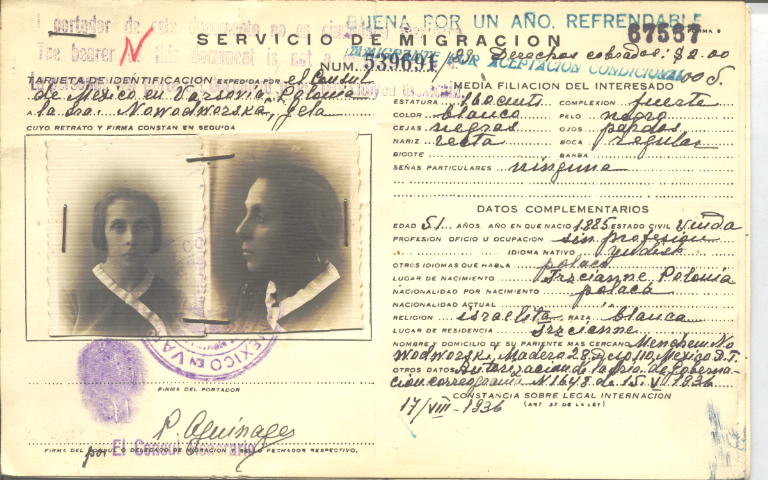 El portador de este documento no es
BUENA POR UN AÑO. REFRENDABLE
67567
SERVICIO DE MIGRACION
FORMA 5
The bearer of this document is not a
N
Derechos cobrados: $2.00
INMIGRANTE POR ACEPTACION CONDICIONAL
NUM. 539691
TARJETA DE IDENTIFICACION EXPEDIDA POR el Consul
de Mexico en Varsovia, Polonia
A la sra. Nowodworska, Bela
CUYO RETRATO Y FIRMA CONSTAN EN SEGUIDA
MEXICO EN VA
FIRMA DEL PORTADOR
P. Aguinaga
por El Consul Honorario
FIRMA DEL CONSUL O DELEGADO DE MIGRACION Y SELLO FECHADOR RESPECTIVO.
MEDIA FILIACION DEL INTERESADO
ESTATURA 160 cent COMPLEXION fuerte
COLOR blanco PELO negro
CEJAS negras OJOS pardos
NARIZ recta BOCA regular
BIGOTE BARBA
SEÑAS PARTICULARES ninguna
DATOS COMPLEMENTARIOS
EDAD 51 AÑOS. AÑO EN QUE NACIO 1885 ESTADO CIVIL Viuda
PROFESION OFICIO U OCUPACION sin profesion
IDIOMA NATIVO yudish
OTROS IDIOMAS QUE HABLA polaco
LUGAR DE NACIMIENTO Trzcianne Polonia
NACIONALIDAD POR NACIMIENTO polaca
NACIONALIDAD ACTUAL
RELIGION israelita RAZA blanca
LUGAR DE RESIDENCIA Trzcianne
NOMBRE Y DOMICILIO DE SU PARIENTE MAS CERCANO Menchem No
wodworski, Madera 28, Dcho 110, Mexico D.F.
OTROS DATOS Autorizacion de la Sria. de Goberna-
cion correograma N 1648 de 15. VI 1936
CONSTANCIA SOBRE LEGAL INTERNACION
(ART 37 DE LA LEY)
17/VIII-1936